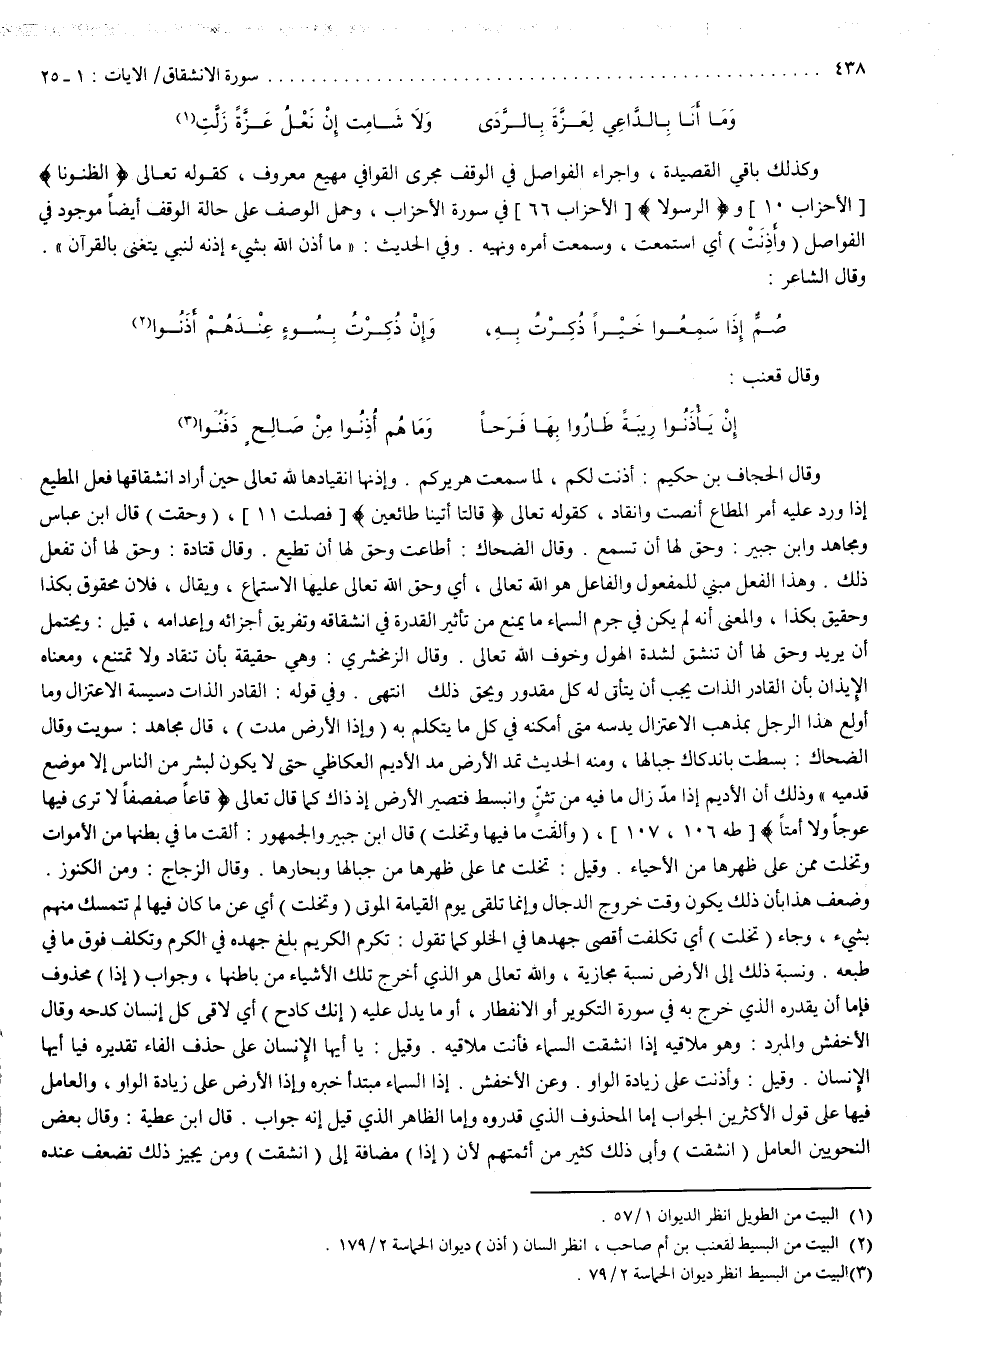 ٤٣٨ .................................................. سورة الانشقاق / الايات : ١ ـ ٢٥
وَمَـا أَنَـا بِـالـدَّاعِي لِعَـزَّةَ بِـالـرَّدَى وَلَا شَـامِت إِنْ نَعْـلُ عَـزَّةً زَلَّتِ(١)
وكذلك باقي القصيدة ، واجراء الفواصل في الوقف مجرى القوافي مهيع معروف ، كقـوله تعـالى ﴿ الظنـونا ﴾
[ الأحزاب ١٠ ] و ﴿ الرسولا ﴾ [ الأحزاب ٦٦ ] في سورة الأحزاب ، وحمل الوصف على حالة الوقف أيضاً موجود في
الفواصل ( وأَذِنَتْ ) أي استمعت ، وسمعت أمره ونهيه . وفي الحديث : « ما أذن الله بشيء إذنه لنبي يتغنى بالقرآن » .
وقال الشاعر :
صُـمٌّ إِذَا سَـمِعُـوا خَـيْـراً ذُكِـرْتُ بِـهِ، وَإِنْ ذُكِـرْتُ بِـسُـوءٍ عِنْـدَهُـمْ أَذَنُـوا(٢)
وقال قعنب :
إِنْ يَـأْذَنُـوا رِيبَةً طَـارُوا بِهَـا فَـرَحـاً وَمَا هُم أُذِنُـوا مِنْ صَـالِحٍ دَفَنُوا(٣)
وقال الحجاف بن حكيم : أذنت لكم ، لما سمعت هريركم . وإذنها انقيادها لله تعالى حين أراد انشقاقها فعل المطيع
إذا ورد عليه أمر المطاع أنصت وانقاد ، كقوله تعالى ﴿ قالتا أتينا طائعين ﴾ [ فصلت ١١ ] ، ( وحقت ) قال ابن عباس
ومجاهد وابن جبير : وحق لها أن تسمع . وقال الضحاك : أطاعت وحق لها أن تطيع . وقال قتادة : وحق لها أن تفعل
ذلك . وهذا الفعل مبني للمفعول والفاعل هو الله تعالى ، أي وحق الله تعالى عليها الاستماع ، ويقال ، فلان محقوق بكذا
وحقيق بكذا ، والمعنى أنه لم يكن في جرم السماء ما يمنع من تأثير القدرة في انشقاقه وتفريق أجزائه وإعدامه ، قيل : ويحتمل
أن يريد وحق لها أن تنشق لشدة الهول وخوف الله تعالى . وقال الزمخشري : وهي حقيقة بأن تنقاد ولا تمتنع، ومعناه
الإيذان بأن القادر الذات يجب أن يتأتى له كل مقدور ويحق ذلك انتهى . وفي قوله : القادر الذات دسيسة الاعتزال وما
أولع هذا الرجل بمذهب الاعتزال يدسه متى أمكنه في كل ما يتكلم به ( وإذا الأرض مدت ) ، قال مجاهد : سويت وقال
الضحاك : بسطت باندكاك جبالها ، ومنه الحديث تمد الأرض مد الأديم العكاظي حتى لا يكون لبشر من الناس إلا موضع
قدميه » وذلك أن الأديم إذا مدّ زال ما فيه من تثنٍّ وانبسط فتصير الأرض إذ ذاك كما قال تعالى ﴿ قاعاً صفصفاً لا ترى فيها
عوجاً ولا أمتاً ﴾ [ طه ١٠٦ ، ١٠٧ ] ، ( وألقت ما فيها وتخلت ) قال ابن جبير والجمهور : ألقت ما في بطنها من الأموات
وتخلت ممن على ظهرها من الأحياء . وقيل : تخلت مما على ظهرها من جبالها وبحارها . وقال الزجاج : ومن الكنوز .
وضعف هذا بأن ذلك يكون وقت خروج الدجال وإنما تلقى يوم القيامة الموتى ( وتخلت ) أي عن ما كان فيها لم تتمسك منهم
بشيء ، وجاء ( تخلت ) أي تكلفت أقصى جهدها في الخلو كما تقول : تكرم الكريم بلغ جهده في الكرم وتكلف فوق ما في
طبعه . ونسبة ذلك إلى الأرض نسبة مجازية ، والله تعالى هو الذي أخرج تلك الأشياء من باطنها ، وجواب ( إذا ) محذوف
فإما أن يقدره الذي خرج به في سورة التكوير أو الانفطار ، أو ما يدل عليه ( إنك كادح ) أي لاقى كل إنسان كدحه وقال
الأخفش والمبرد : وهو ملاقيه إذا انشقت السماء فأنت ملاقيه . وقيل : يا أيها الإنسان على حذف الفاء تقديره فيا أيها
الإنسان . وقيل : وأذنت على زيادة الواو . وعن الأخفش . إذا السماء مبتدأ خبره وإذا الأرض على زيادة الواو ، والعامل
فيها على قول الأكثرين الجواب إما المحذوف الذي قدروه وإما الظاهر الذي قيل إنه جواب . قال ابن عطية : وقال بعض
النحويين العامل ( انشقت ) وأبى ذلك كثير من أئمتهم لأن ( إذا ) مضافة إلى ( انشقت ) ومن يجيز ذلك تضعف عنده
(١) البيت من الطويل انظر الديوان ٥٧/١ .
(٢) البيت من البسيط لقعنب بن أم صاحب ، انظر السان ( أذن ) ديوان الحماسة ١٧٩/٢ .
(٣) البيت من البسيط انظر ديوان الحماسة ٧٩/٢ .